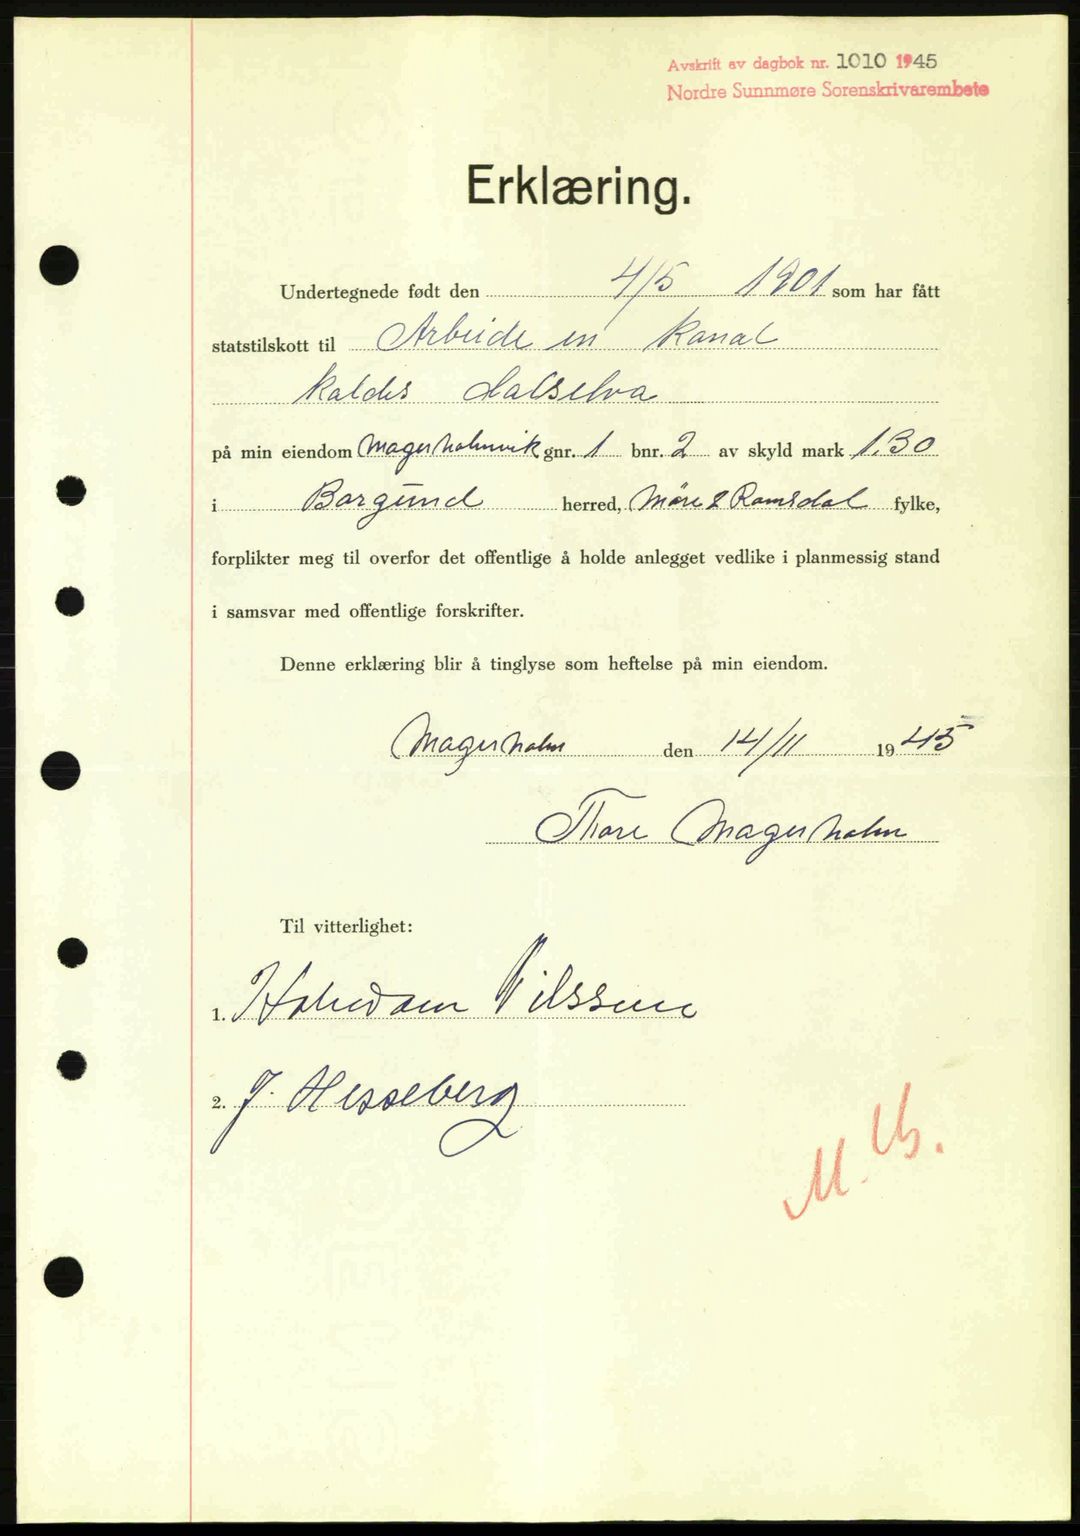 Avskrift av dagbok nr. 1010 1945
Nordre Sunnmøre Sorenskrivarembete
Erklæring.
Undertegnede født den 4/5 1901 som har fått
statstilskott til Arbeide en kanal
kaldes Dalselva
på min eiendom Magerholmvik gnr. 1 bnr. 2 av skyld mark 1.30
i Borgund herred, Møre & Romsdal fylke,
forplikter meg til overfor det offentlige å holde anlegget vedlike i planmessig stand
i samsvar med offentlige forskrifter.
Denne erklæring blir å tinglyse som heftelse på min eiendom.
Magerholm den 14/11 1945
Thore Magerholm
Til vitterlighet:
1. Nilssen
2. J. Hesseberg